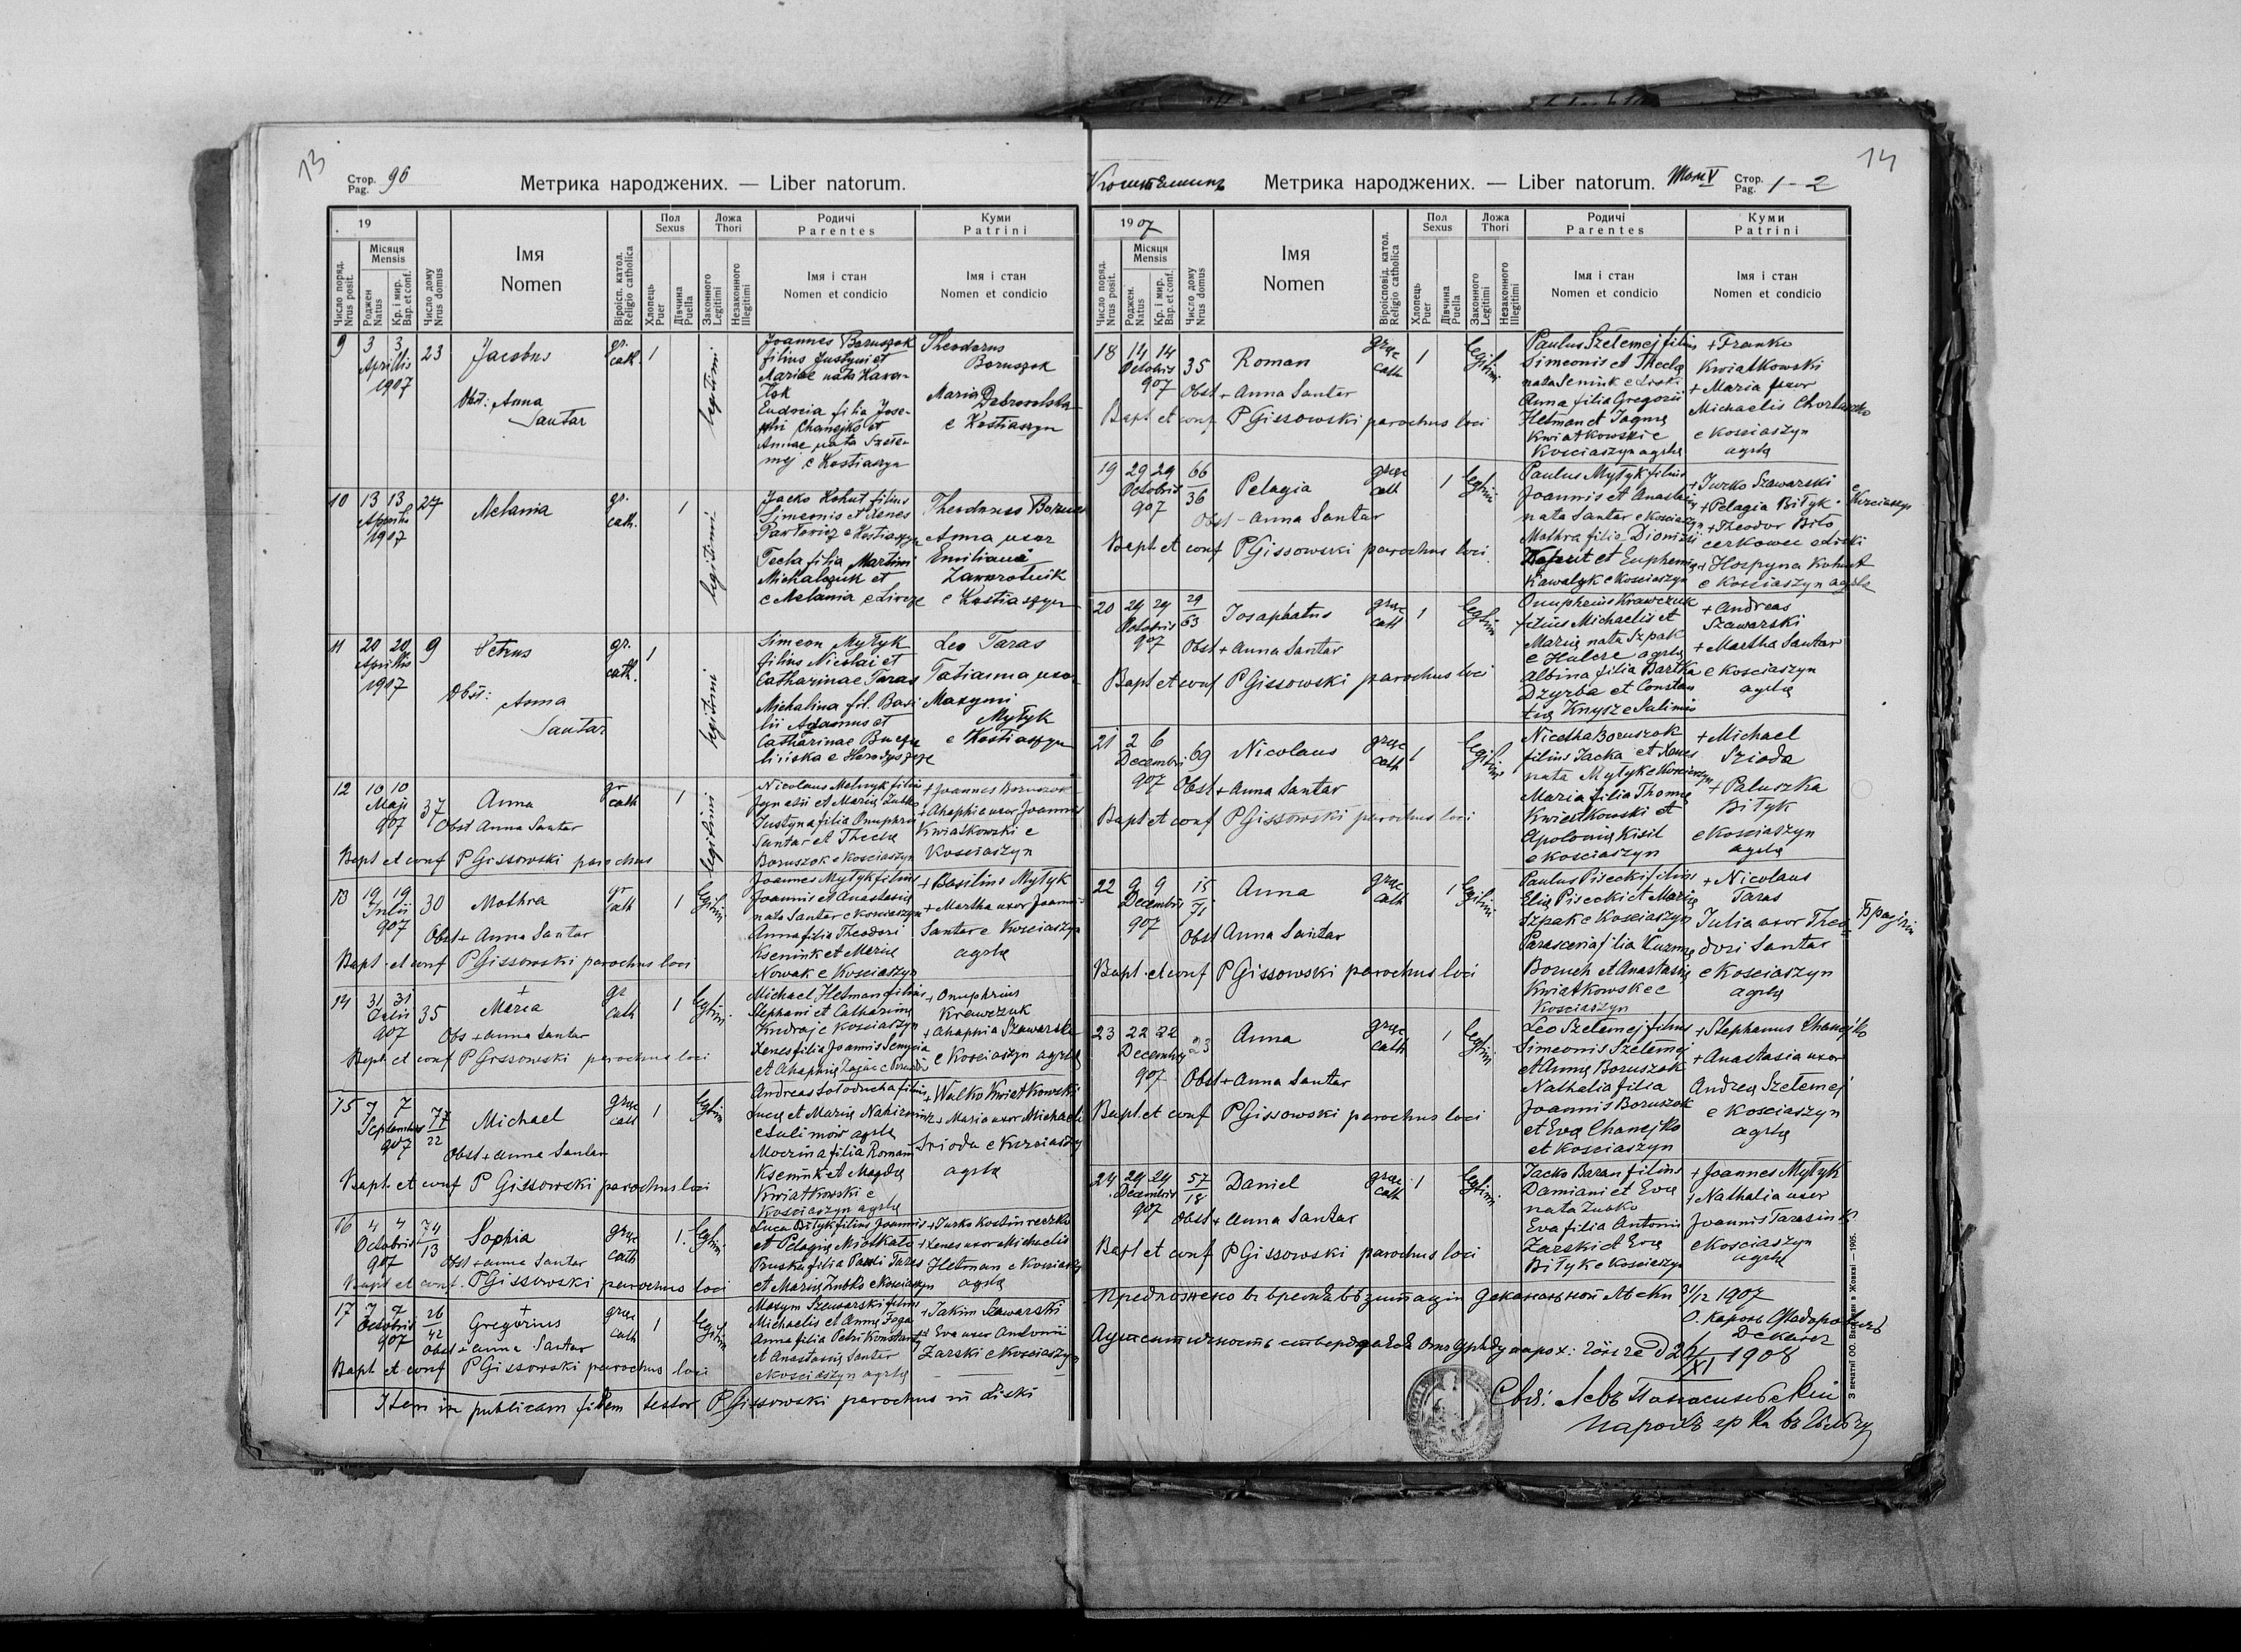 13
Стор.
Pag. 96
Метрика народжених. — Liber natorum.
19
Число поряд.
Nrus posit.
Місяця
Mensis
Роджен
Natus
Кр. і мир.
Bap. et conf.
Число дому
Nrus domus
Імя
Nomen
Віріcп. катол.
Religio catholica
Пол
Sexus
Хлопець
Puer
Дівчина
Puella
Ложа
Thori
Законного
Legitimi
Незаконного
Illegitimi
Родичі
Parentes
Імя і стан
Nomen et condicio
Куми
Patrini
Імя і стан
Nomen et condicio
9 3 3 23 Jacobus gr. cath 1 legitimi
Aprilis
1907
Obst: Anna
Santar
Joannes Boruszok
filius Justyni et
Mariae nata Kawa-
lok
Eudocia filia Jose-
phi Chanejko et
Annae nata Szele-
mej e Kostiaszyn
Theodorus
Boruszok
Maria Dobrowolska
e Kostiaszyn
10 13 13 27 Melania gr. cath. 1 legitimi
Aprilis
1907
Jacko Kohut filius
Simeonis et Xenes
Pawlowicz e Kostiaszyn
Tecla filia Martini
Michalczuk et
e Melania e Liveze
Theodorus Boruszok
Anna uxor
Emiliana
Zaworotnik
e Kostiaszyn
11 20 20 9 Petrus gr. cath. 1 legitimi
Aprilis
1907
Obst: Anna
Santar
Simeon Mytyk
filius Nicolai et
Catharinae Taras
Michalina fil. Basi
lii Adamus et
Catharinae
Leo Taras
Tatianna uxor
Maxymi
Mytyk
e Kostiaszyn
12 10 10 37 Anna gr cath 1 legitimi
Maji
907
Obst Anna Santar
Bapt et conf P Gissowski parochus
Nicolaus Melnyk filius
Ignatii et Marię Zubko
Justyna filia Onuphrii
Santar et Thecla
Boruszok e Kosciaszyn
+ Joannes Boruszok
+ Ahaphia uxor Joannis
Kwiatkowski e
Kosciaszyn
13 19 19 30 Mothra gr cath 1 legitimi
Julii
907
Obst + Anna Santar
Bapt. et conf P Gissowski parochus loci
Joannes Mytyk filius
Joannis et Anastasię
nata Santar e Kosciaszyn
Anna filia Theodori
Ksenink et Marię
Nowak e Kosciaszyn
+ Basilius Mytyk
+ Martha uxor Joannis
Santar e Kosciaszyn
agrlę
14 31 31 35 + Maria gr cath 1 legitimi
Julii
907
Obs + Anna Santar
Bapt et conf P Gissowski parochus loci
Michael Hetman filius
Stephani et Catharinę
Kudraj e Kosciaszyn
Xenes filia Joannis
et Ahaphię Zając
+ Onuphrius
Krawczuk
+ Ahaphia Szawarska
e Kosciaszyn agrlę
15 7 7 77/22 Michael gręc cath 1 legitimi
Septembris
907
Obst + Anna Santar
Bapt. et conf P Gissowski parochus loci
Andreas Sołoducha filius
Lucę et Marię
e Sulimów agrlę
filia Romani
Ksenink et Magdę
Kwiatkowski e
Kosciaszyn agrlę
+ Walko Kwiatkowski
+ Maria uxor Michaeli
Srioda e Kosciaszyn
agrlę
16 4 4 74/13 Sophia gręc cath 1 legitimi
Octobris
907
Obst + Anna Santar
Bapt et conf. P Gissowski parochus loci
Luca Biłyk filius Joannis
et Pelagię
filia Pauli Taras
et Marię Zubko e Kosciaszyn
+ Jurko
+ Xenes uxor Michaelis
Hetman e Kosciaszyn
agrlę
17 7 7 26/42 + Gregorius gręc cath 1 legitimi
Octobris
907
Obst + Anna Santar
Bapt et conf P Gissowski parochus loci
Maxym Szawarski filius
Michaelis et Annę
Anna filia Petri
et Anastasię Santar
e Kosciaszyn agrlę
+ Jakim Szawarski
+ Eva uxor Antonii
Zarski e Kosciaszyn
Item in publicam fidem testor P Gissowski parochus in Liski
14
Метрика народжених. — Liber natorum. Том V
Стор.
Pag. 1-2
1907
Число поряд.
Nrus posit.
Місяця
Mensis
Роджен.
Natus
Кр. і мир.
Bap. et conf.
Число дому
Nrus domus
Імя
Nomen
Віроісповід. катол.
Religio catholica
Пол
Sexus
Хлопець
Puer
Дівчина
Puella
Ложа
Thori
Законного
Legitimi
Незаконного
Illegitimi
Родичі
Parentes
Імя і стан
Nomen et condicio
Куми
Patrini
Імя і стан
Nomen et condicio
18 14 14 35 Roman gręc cath 1 legitimi
Octobris
907
Obst + Anna Santar
Bapt et conf P Gissowski parochus loci
Paulus Szelemej filius
Simeonis et Theclę
nata Senink e Liski
Anna filia Gregorii
Hetman et Jagnię
Kwiatkowski e
Kosciaszyn agrlę
+ Franko
Kwiatkowski
+ Maria uxor
Michaelis
e Kosciaszyn
agrlę
19 29 29 66/36 Pelagia gręc cath 1 legitimi
Octobris
907
Obst - Anna Santar
Bapt et conf P Gissowski parochus loci
Paulus Mytyk filius
Joannis et Anastasię
nata Santar e Kosciaszyn
Mothra filia Dionizii
et Euphemię
Kawalyk e Kosciaszyn
+ Jurko Szawarski
+ Pelagia Biłyk e Kosciaszyn
+ Theodor Biło
cerkowec e Liski
+ Hospyna Kohut
e Kosciaszyn agrlę
20 29 29 29/63 Josaphatus gręc cath 1 legitimi
Octobris
907
Obst + Anna Santar
Bapt et conf P Gissowski parochus loci
Onuphrius Krawczuk
filius Michaelis et
Marię nata Szpak
e Hulcze agrlę
Albina filia Bartka
Dzyrba et Constan
tię Knysz e Salimie
+ Andreas
Szawarski
+ Martha Santar
e Kosciaszyn
agrlę
21 2 6 69 Nicolaus gręc cath 1 legitimi
Decembri
907
Obst + Anna Santar
Bapt et conf P Gissowski parochus loci
Nicetha Boruszok
filius Jacka et Xenes
nata Mytyk e Kosciaszyn
Maria filia Thomę
Kwiatkowski et
Apolonię Kisil
e Kosciaszyn
+ Michael
Srioda
+ Paluszka
Biłyk
e Kosciaszyn
agrlę
22 9 9 15/71 Anna gręc cath 1 legitimi
Decembris
907
Obst Anna Santar
Bapt. et conf P Gissowski parochus loci
Paulus Pisecki filius
Elię Pisecki et Marię
Szpak e Kosciaszyn
Parascevia filia Kuzmę
Boruch et Anastasię
Kwiatkowski e
Kosciaszyn
+ Nicolaus
Taras
Julia uxor Theo-
dori Santar
e Kosciaszyn
agrlę
23 22 22 23 Anna gręc cath 1 legitimi
Decembris
907
Obst + Anna Santar
Bapt. et conf P Gissowski parochus loci
Leo Szelemej filius
Simeonis Szelemej
et Annę Boruszok
Nathalia filia
Joannis Boruszok
et Evę Chanejko
et Kosciaszyn
+ Stephanus Chanejko
+ Anastasia uxor
Andreę Szelemej
e Kosciaszyn
agrlę
24 24 24 57/18 Daniel gręc cath 1 legitimi
Decembris
907
Obst + Anna Santar
Bapt et conf P Gissowski parochus loci
Jacko Baran filius
Damiani et Evę
nata Zubko
Eva filia Antonii
Zarski et Evę
Biłyk e Kosciaszyn
+ Joannes Mytyk
+ Nathalia uxor
Joannis Tarasink
e Kosciaszyn
agrlę
Предложено въ время визитации деканальной Лѣски 31/12 1907
Декан
1908
З печатні ОО. Василиян в Жовкві — 1905.